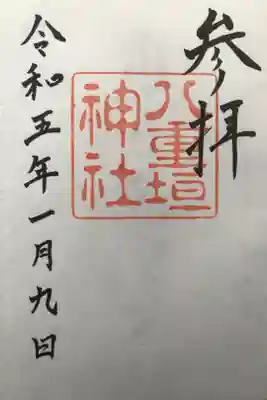 参拝
八重垣
神社
令和五年一月九日